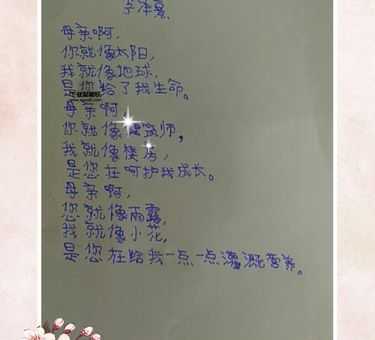 母亲啊,
你就像太阳,
我就像地球,
是您给了我生命。
母亲啊
你就像建筑师,
我就像楼房,
是您在呵护我成长。
母亲啊,
您就像雨露,
我就像小花,
是您在给我一点一点灌溉营养。